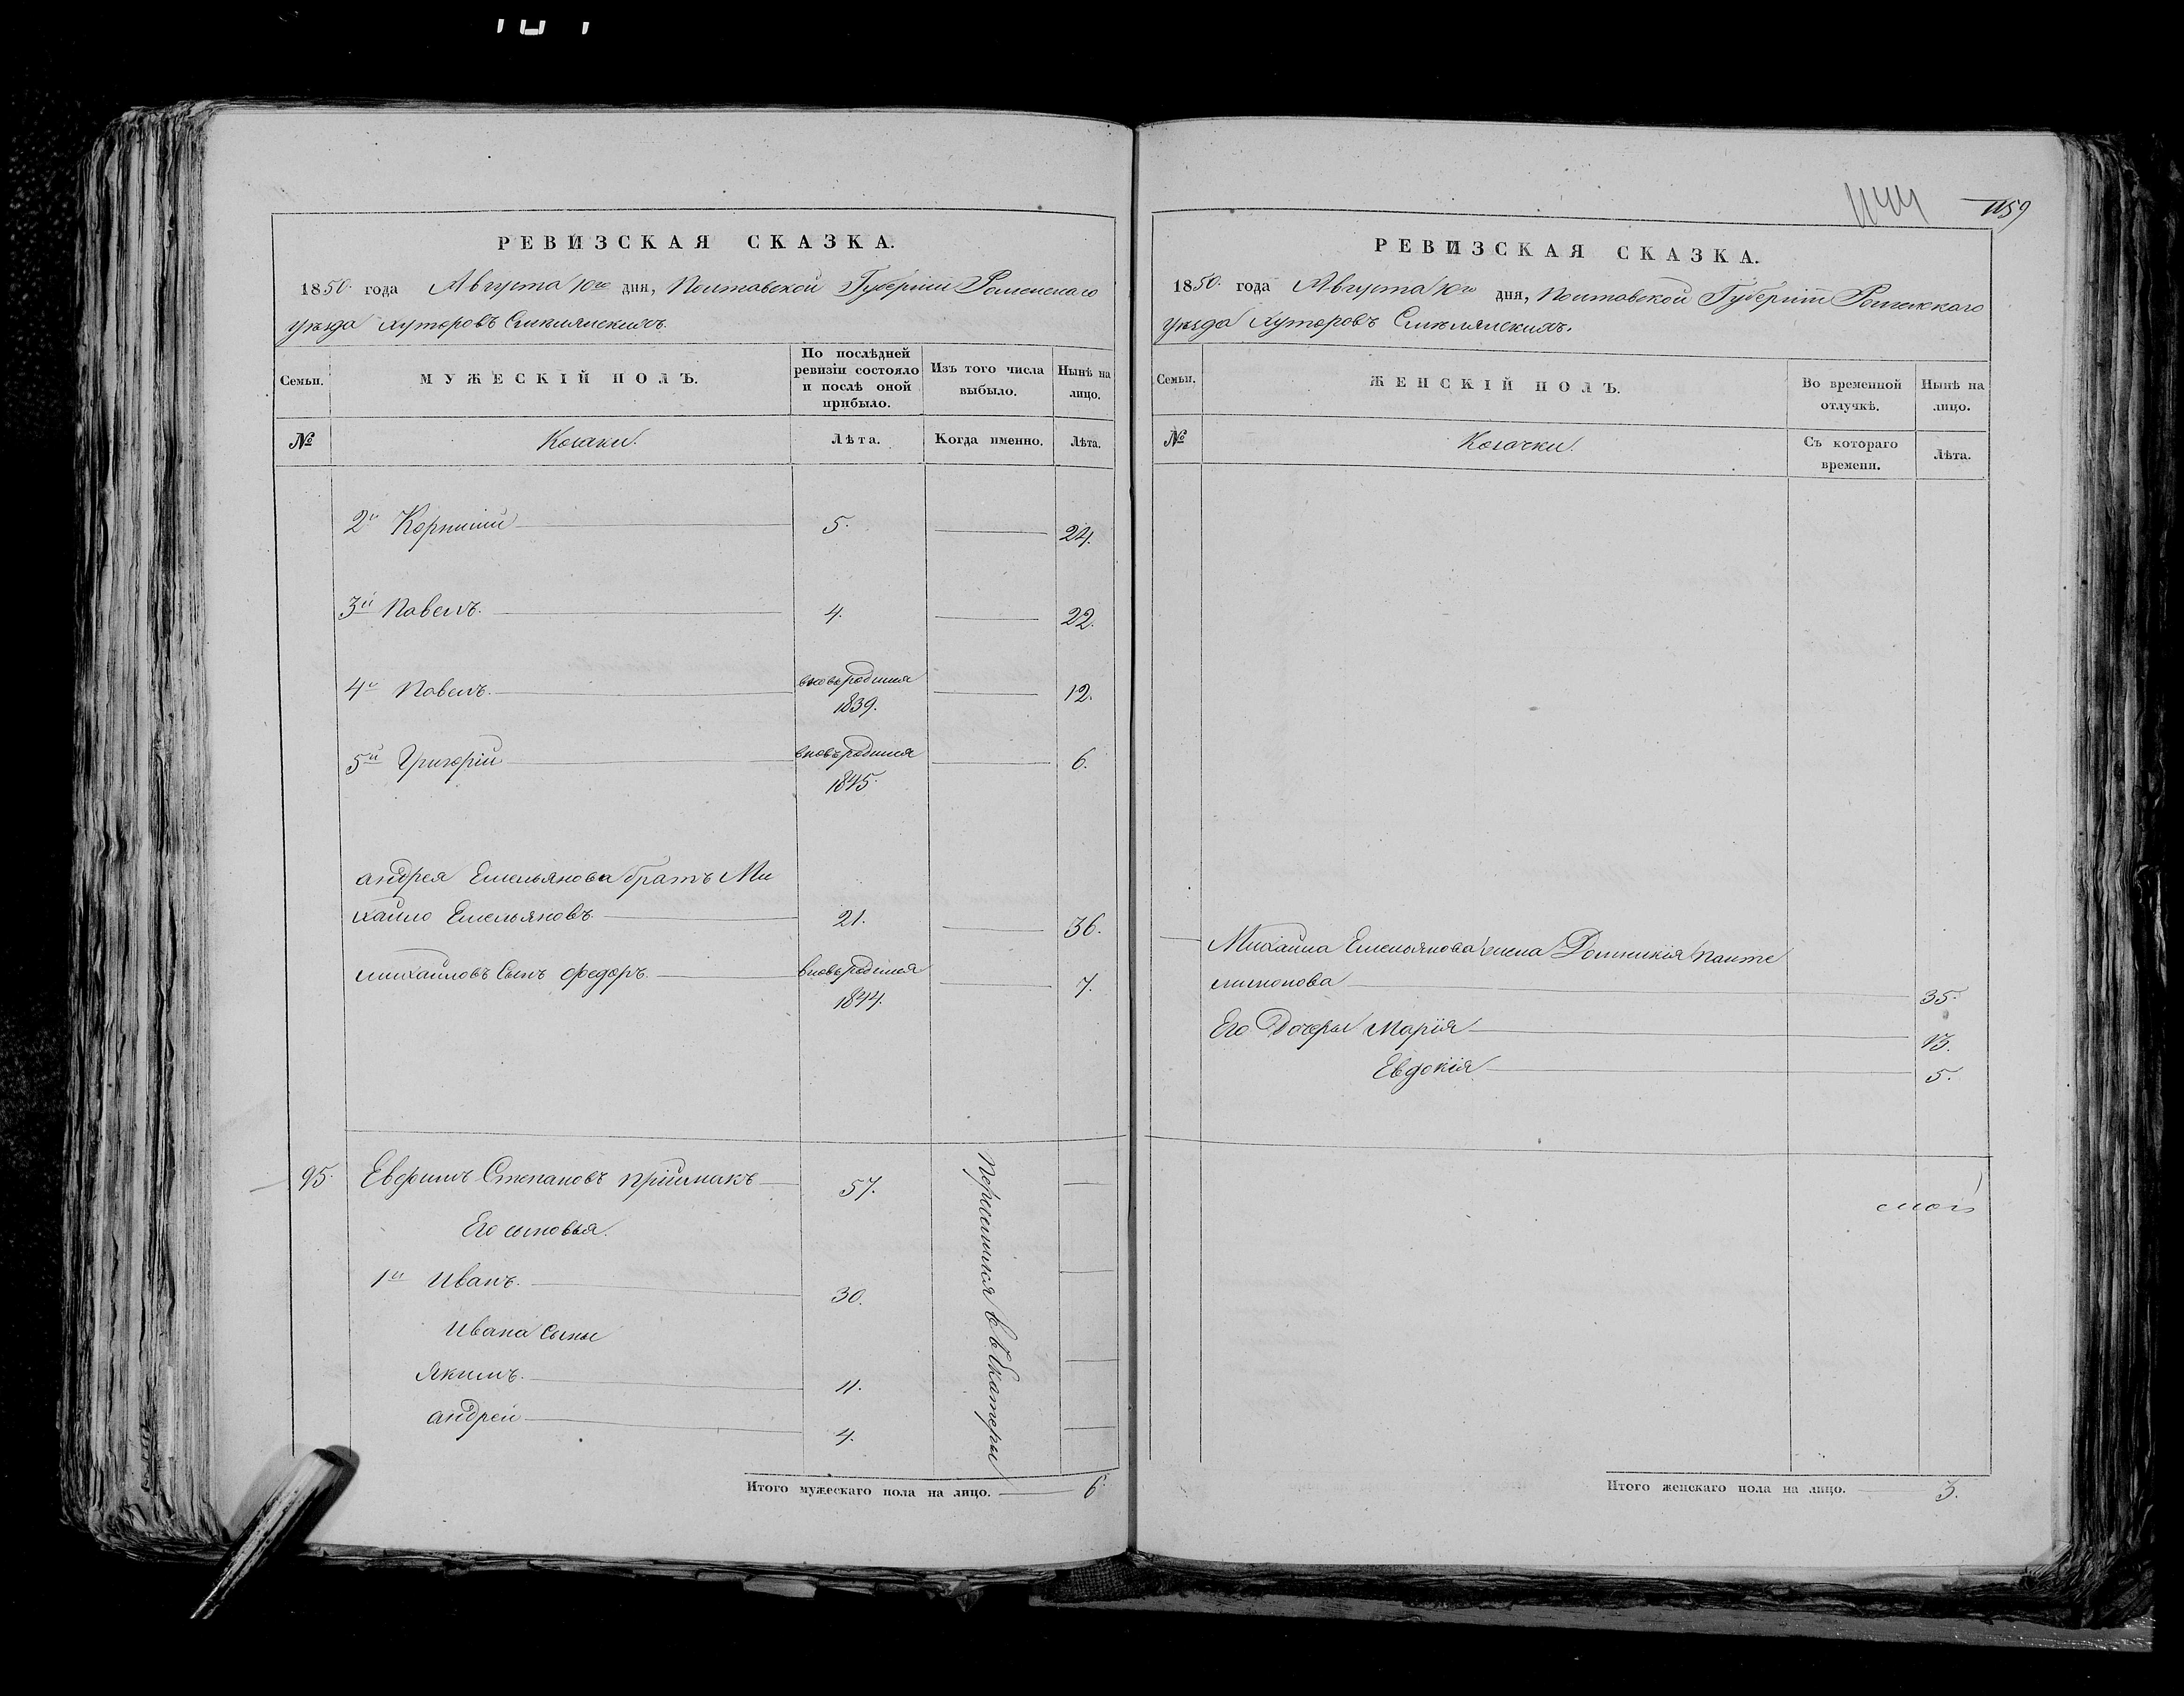 1144 1159
РЕВИЗСКАЯ СКАЗКА.
1850. года Августа 10го дня, Полтавской Губернии Роменскаго
уезда хуторовъ Смелянскихъ.
Семьи. МУЖЕСКІЙ ПОЛЪ. По послѣдней ревизіи состояло и послѣ оной прибыло. Изъ того числа выбыло. Нынѣ на лицо.
№ Козаки. Лѣта. Когда именно. Лѣта.
2й Корнилий 5. 24.
3й Павелъ. 4. 22.
4й Павелъ. вновьродился 1839. 12.
5й Григорій вновьродился 1845. 6.
андрея Емельянова братъ Ми
хайло Емельяновъ 21. 36.
михайловъ Сынъ Федоръ. вновьродился 1844. 7.
95. Евфимъ Степановъ пріймакъ 57.
Его сыновья.
1й Иванъ. 30.
Ивана Сыны
Якимъ. 11.
андрей 4.
Переселился въ Екатери
Итого мужескаго пола на лицо. 6
РЕВИЗСКАЯ СКАЗКА.
1850. года Августа 10го дня, Полтавской Губерніи Роменскаго
уезда Хуторовъ Смелянскихъ.
Семьи. ЖЕНСКІЙ ПОЛЪ. Во временной отлучкѣ. Нынѣ на лицо.
№ Козачки. Съ котораго времени. Лѣта.
Михайла Емельянова жена Домникія Панте
лимонова 35.
Его Дочери Марія 13.
Евдокія 5.
Итого женскаго пола на лицо. 3.